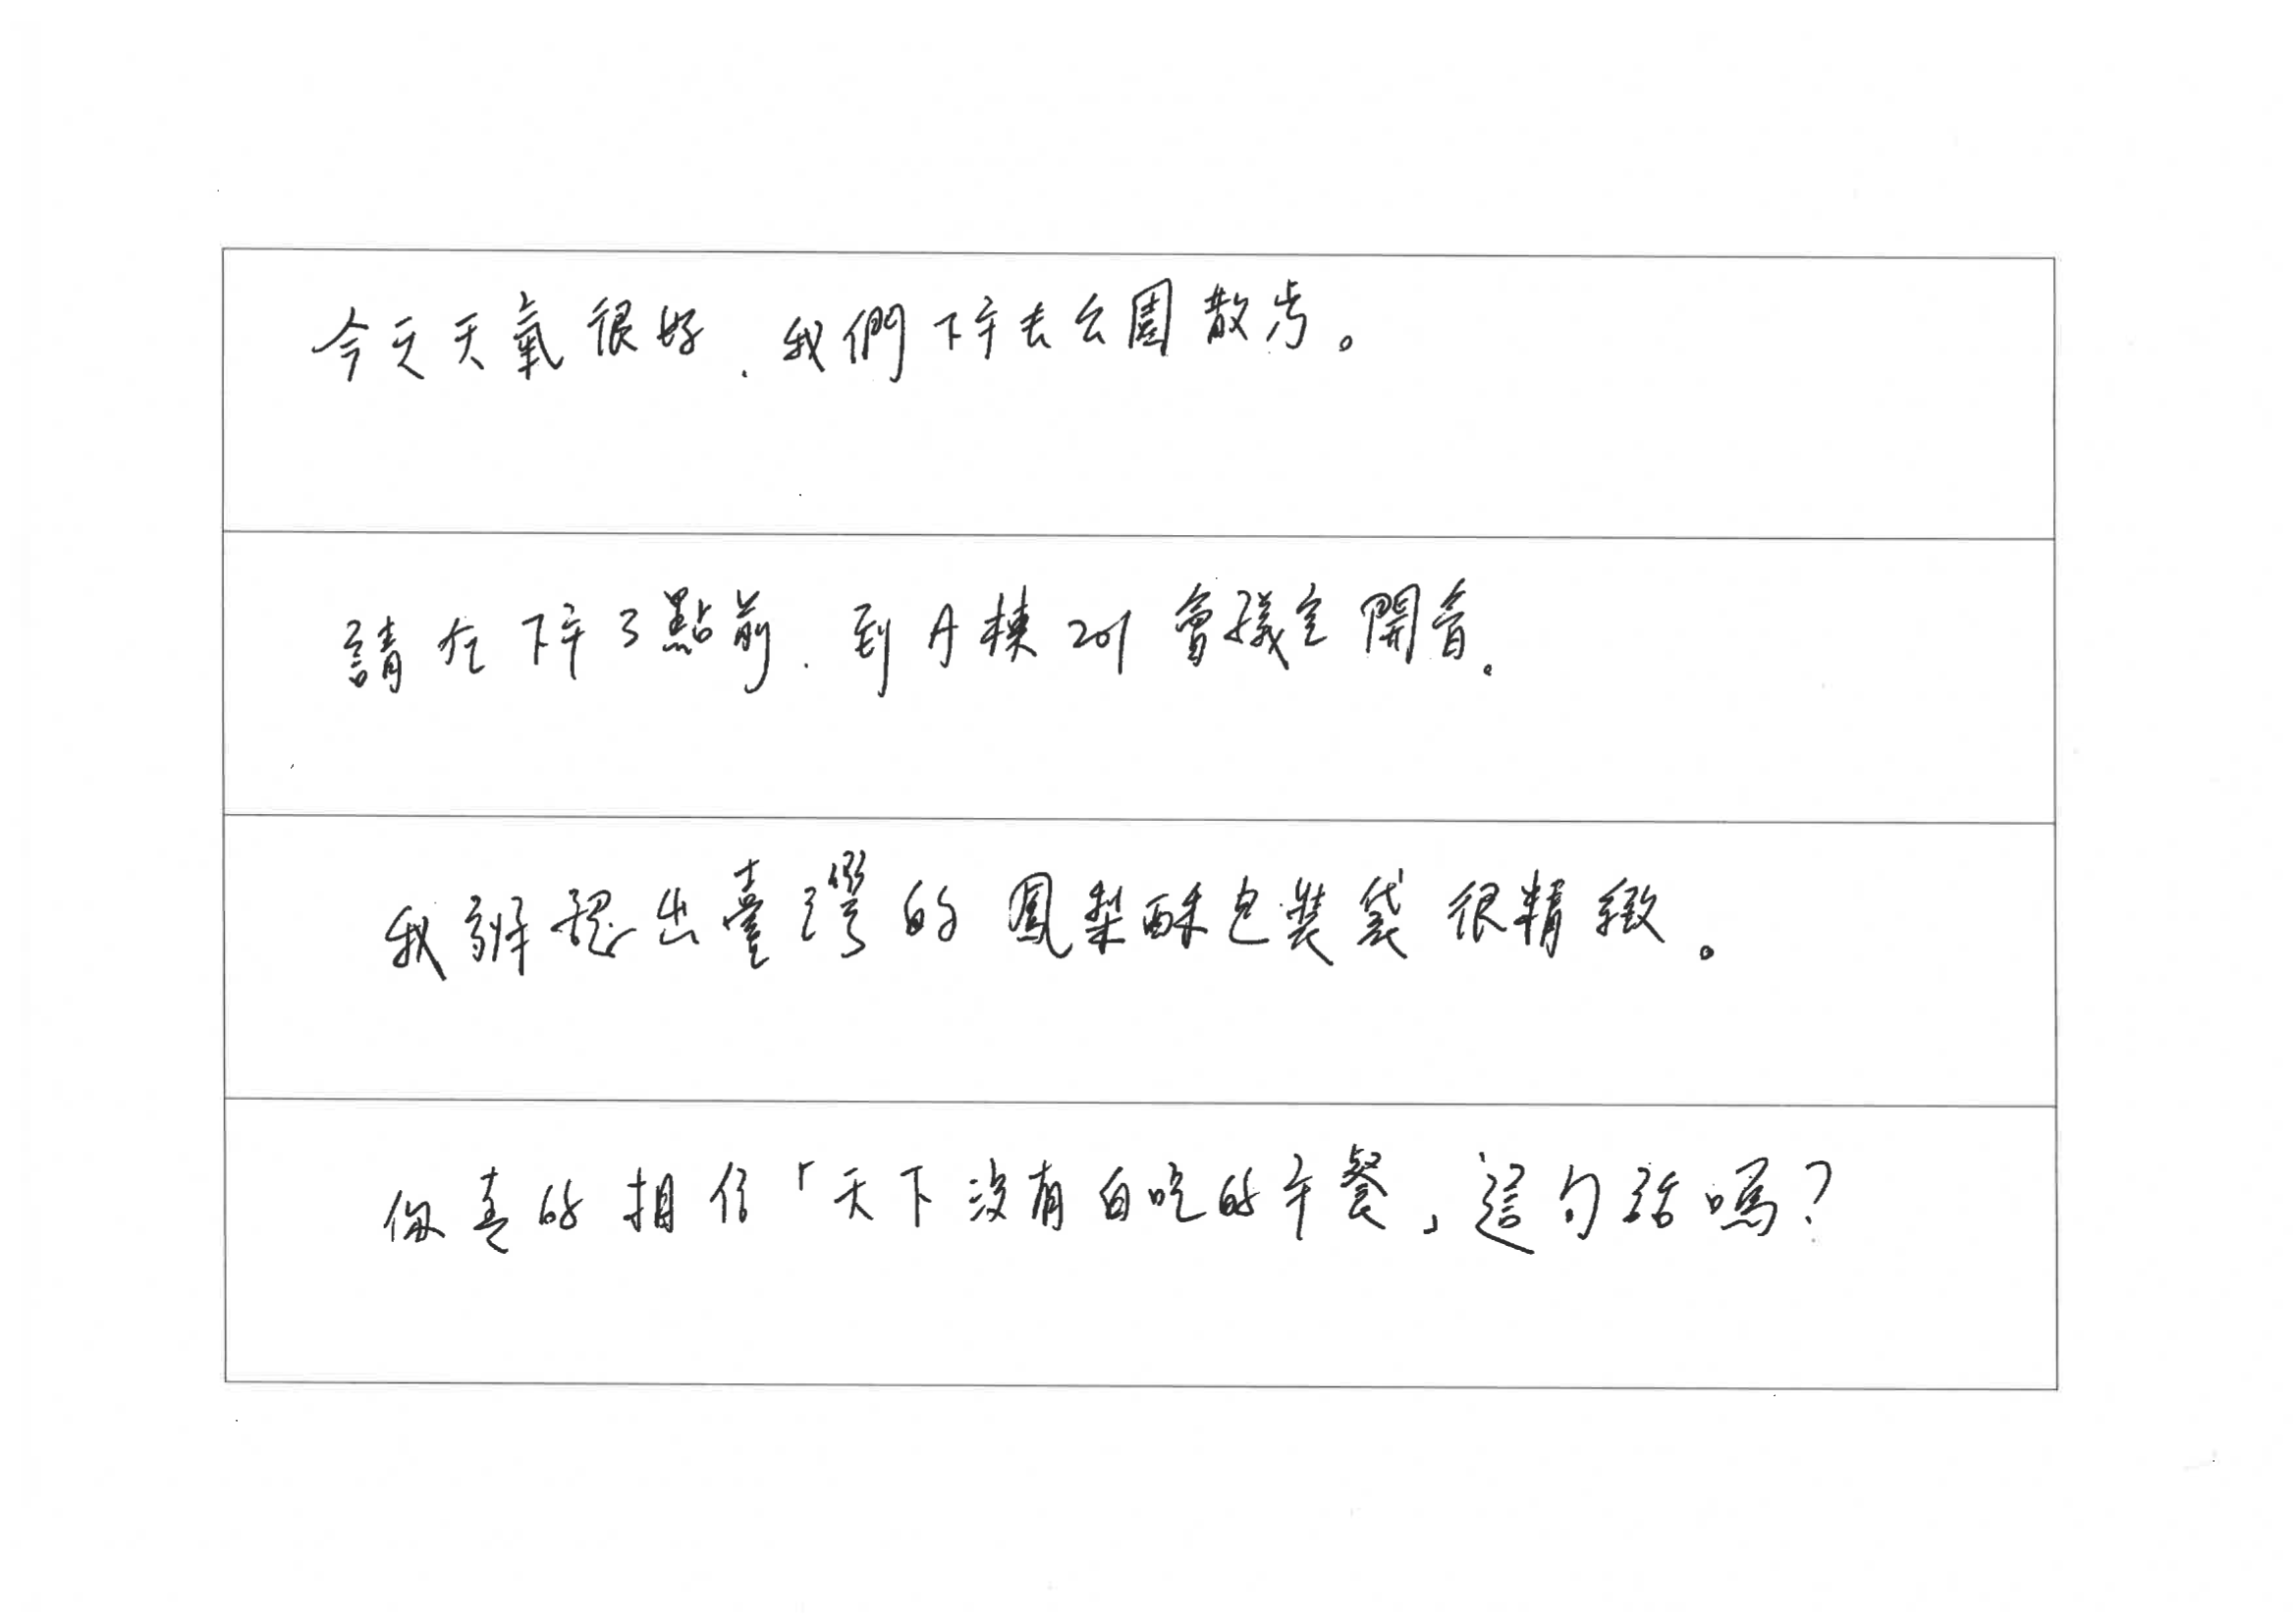 今天天氣很好，我們下午去公園散步。
請在下午3點前，到A棟201會議室開會。
我辨認出臺灣的鳳梨酥包裝袋很精緻。
你真的相信「天下沒有白吃的午餐」這句話嗎？